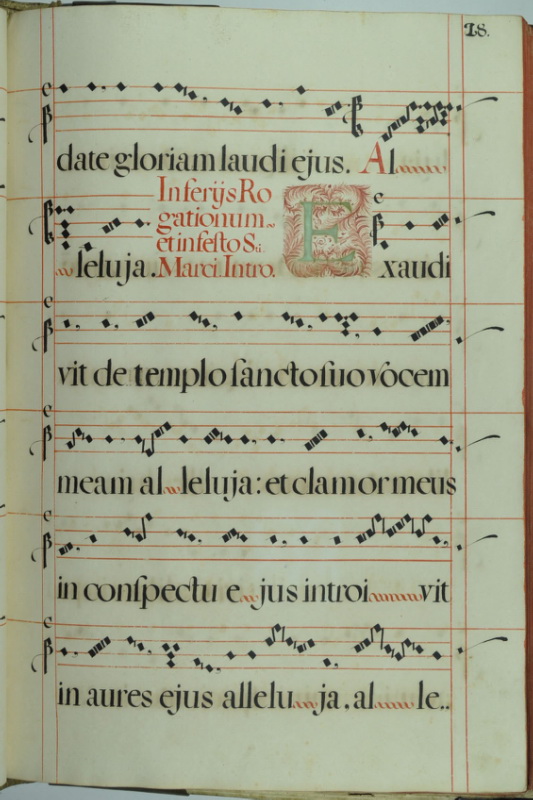 18.
date gloriam laudi ejus. Al
In ferijs Ro
gationum
et in festo S.ti
Marci. Intro.
leluja. Exaudi
vit de templo sancto suo vocem
meam al leluja: et clamor meus
in conspectu e jus introi vit
in aures ejus allelu ja. al le..